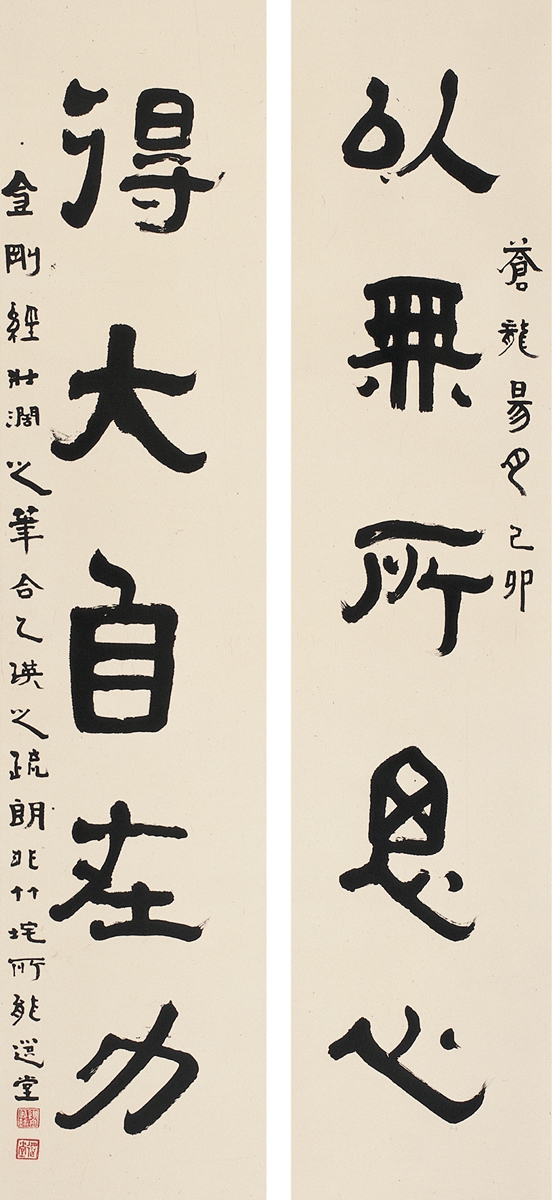 以無所思心
蒼龍昜月己卯
得大自在力
金剛經壯濶之筆合乙瑛之疏朗非竹垞所能選堂